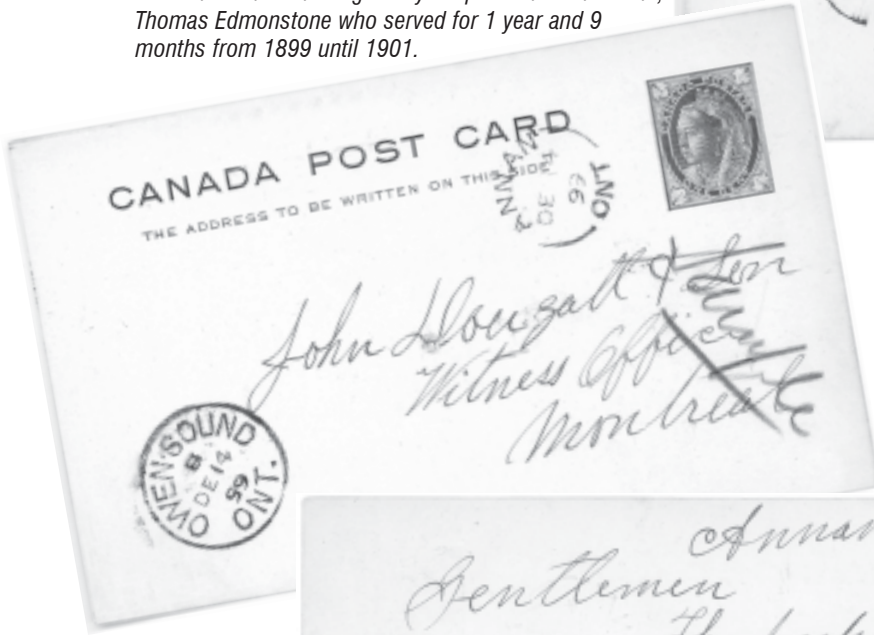 Thomas Edmonstone who served for 1 year and 9
months from 1899 until 1901.
CANADA POST CARD
THE ADDRESS TO BE WRITTEN ON THIS SIDE
ONT
99
John Dougall & Son
Witness Office
Montreal
OWEN SOUND
8
DE 14
99
ONT.
Gentlemen